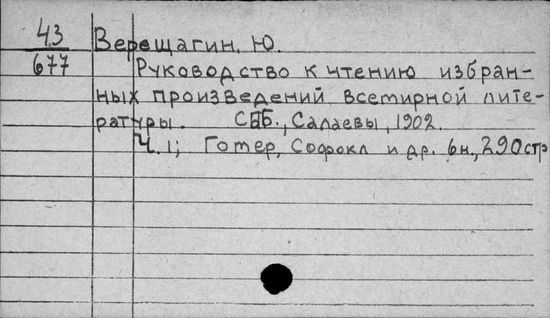 43 Верещагин, Ю.
677 Руководство к чтению избран-
ных произведений всемирной лите-
ратуры. СПБ., Салаевы, 1902.
Ч. 1; Гомер, Софокл и др. 6н., 290стр